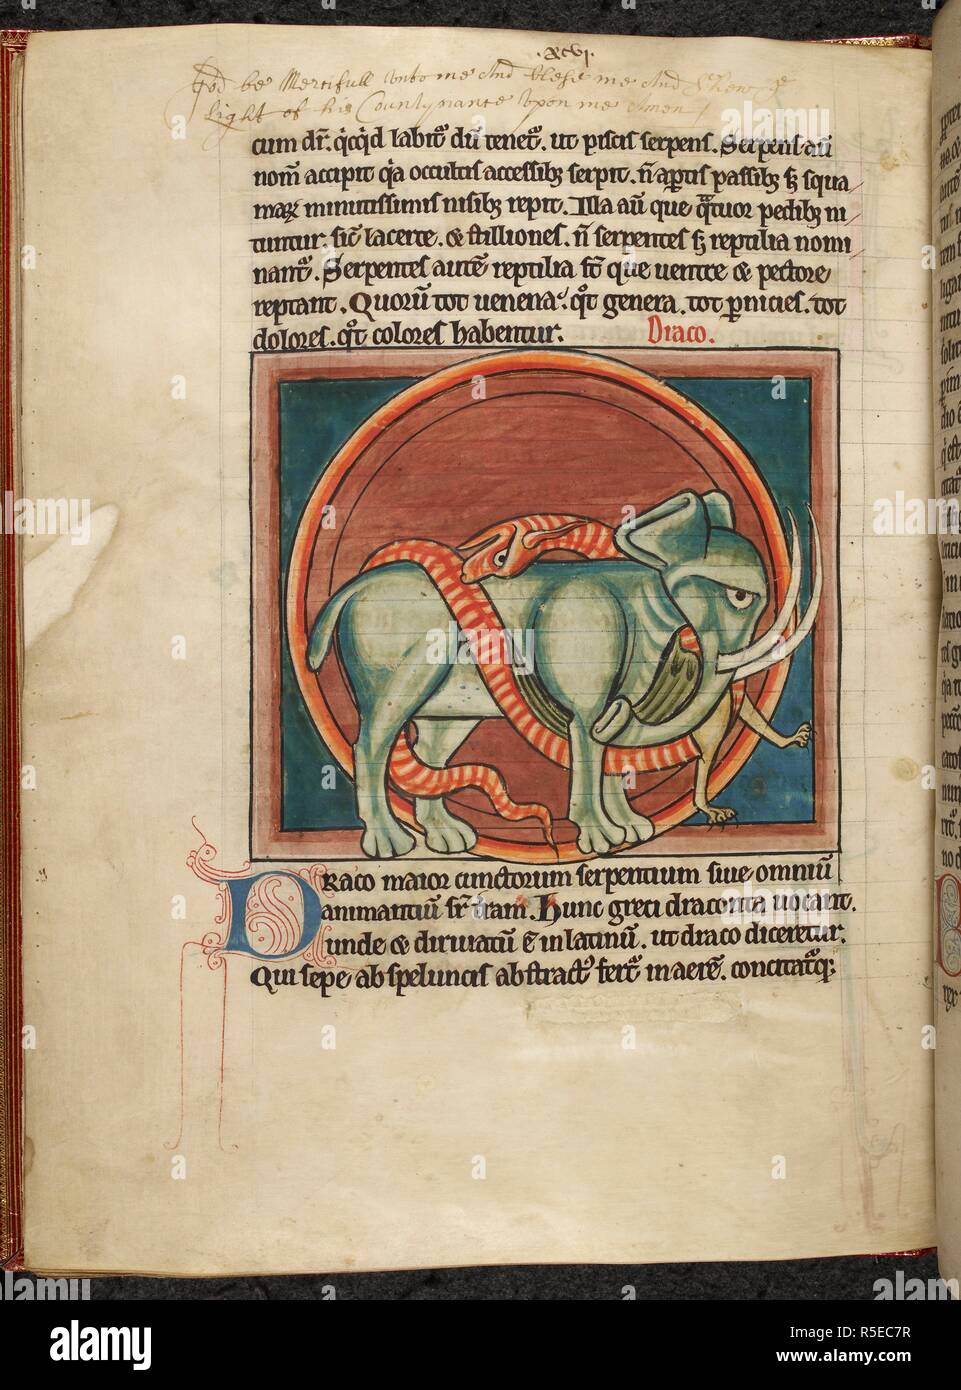 .xcvj.
God be Mercifull Unto me And Blesse me And Shew ye
Light of his Countynance Upon me Amen
cum dr̄. q̇cq̇d labit᷒ dū tenet᷒. ut piscis serpens. Serpens aū
nom̄ accipit q̇a occultis accessibȝ serpit. n̄ aꝑtis passibȝ sȝ squa
maꝝ minutissimis nisibȝ repit. Illa aū que q̈tuor pedibȝ ni
tuntur. sic̄ lacerte. & stilliones. n̄ serpentes sȝ reptilia nomi
nant᷒. Serpentes autē reptilia st̄ que uentre & pectore
reptant. Quorū tot uenena. qͦt genera. tot ꝑnicies. tot
dolores. qͦt colores habentur. Draco.
DRaco maior cunctorum serpentium siue omniū
animantiū sr̄ t̄ram. Hunc greci draconta uocant.
unde & diriuatū ē in latinū. ut draco diceretur.
Qui sepe ab speluncis abstract᷒ fert᷒ in aerē. concitat᷒qȝ
alamy stock photo
R5EC7R
www.alamy.com